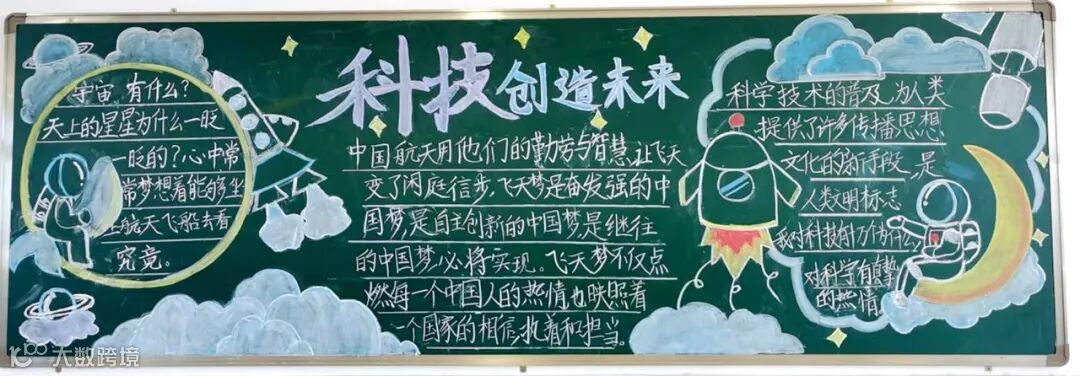 科技创造未来
宇宙 有什么?
天上的星星为什么一眨
一眨的?心中常
常梦想着能够坐
上航天飞船去看
究竟。
中国航天用他们的勤劳与智慧,让飞天
变了闲庭信步,飞天梦是奋发强的中
国梦,是自主创新的中国梦,是继往
的中国梦,必将实现。飞天梦不仅点
燃每一个中国人的热情也映照着
一个国家的相信,执着和担当。
科学技术的普及,为人类
提供了许多传播思想
文化的新手段,是
人类明标志
我对科技的万个为什么,
对科学有
的热情
大数跨境